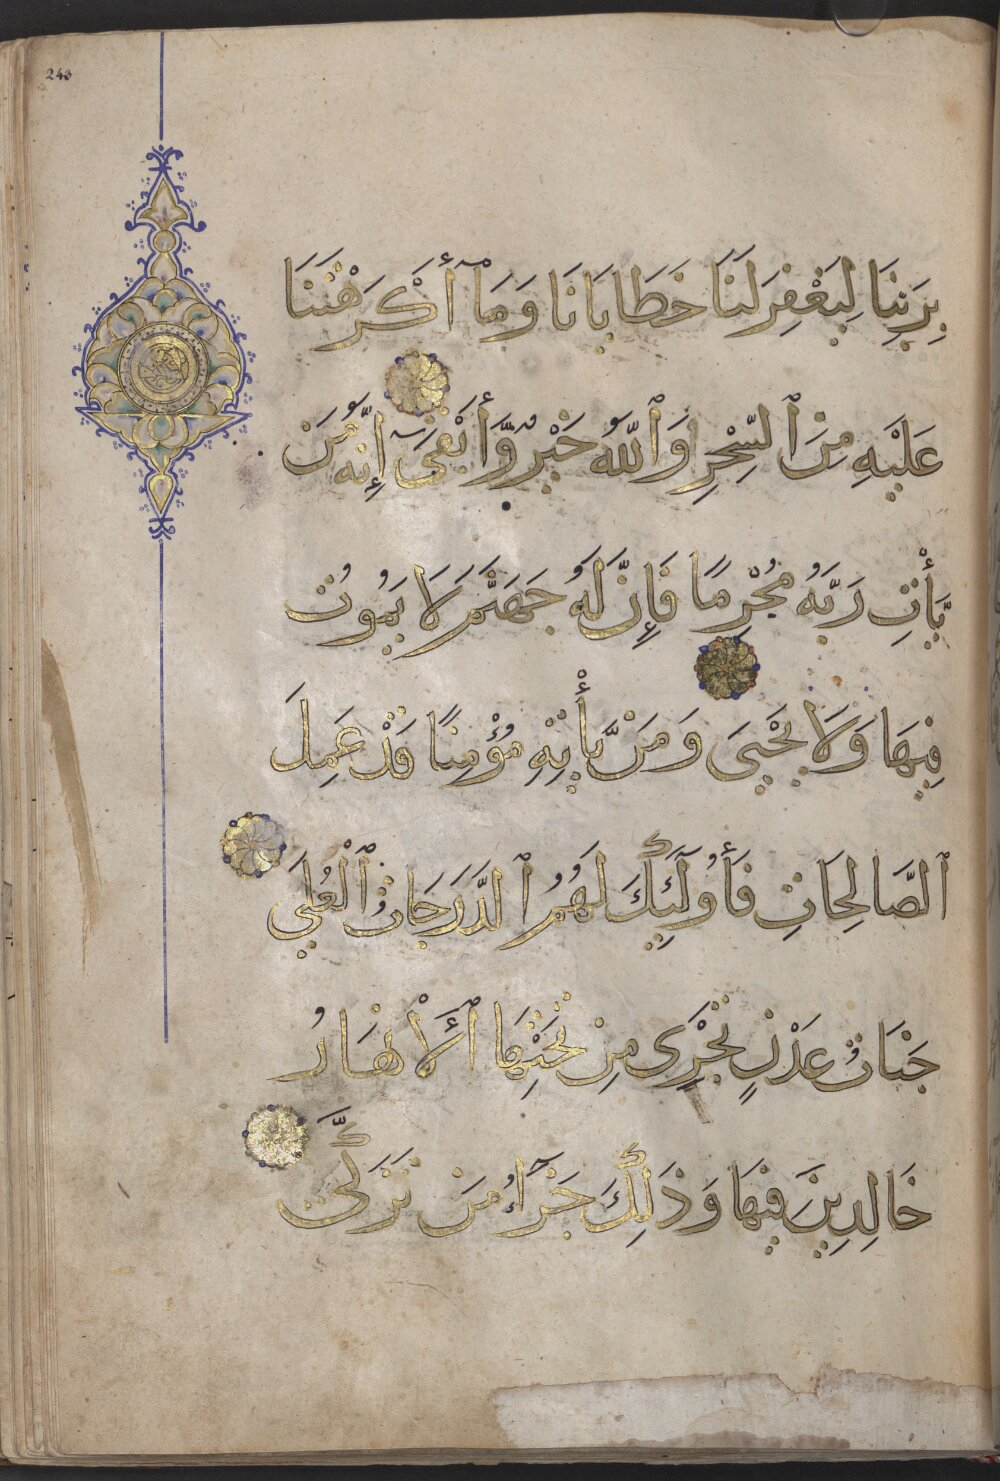 243
بِرَبِّنَا لِيَغْفِرَ لَنَا خَطَايَانَا وَمَا أَكْرَهْتَنَا
عَلَيْهِ مِنَ ٱلسِّحْرِ وَٱللَّهُ خَيْرٌ وَّأَبْقَىٰٓ إِنَّهُ مَنْ
يَّأْتِ رَبَّهُ مُجْرِمًا فَإِنَّ لَهُ جَهَنَّمَ لَا يَمُوتُ
فِيهَا وَلَا يَحْيَىٰ وَمَنْ يَّأْتِهِ مُؤْمِنًا قَدْ عَمِلَ
ٱلصَّالِحَاتِ فَأُولَٰٓئِكَ لَهُمُ ٱلدَّرَجَاتُ ٱلْعُلَىٰ
جَنَّاتُ عَدْنٍ تَجْرِي مِنْ تَحْتِهَا ٱلْأَنْهَارُ
خَالِدِينَ فِيهَا وَذَٰلِكَ جَزَآءُ مَنْ تَزَكَّىٰ